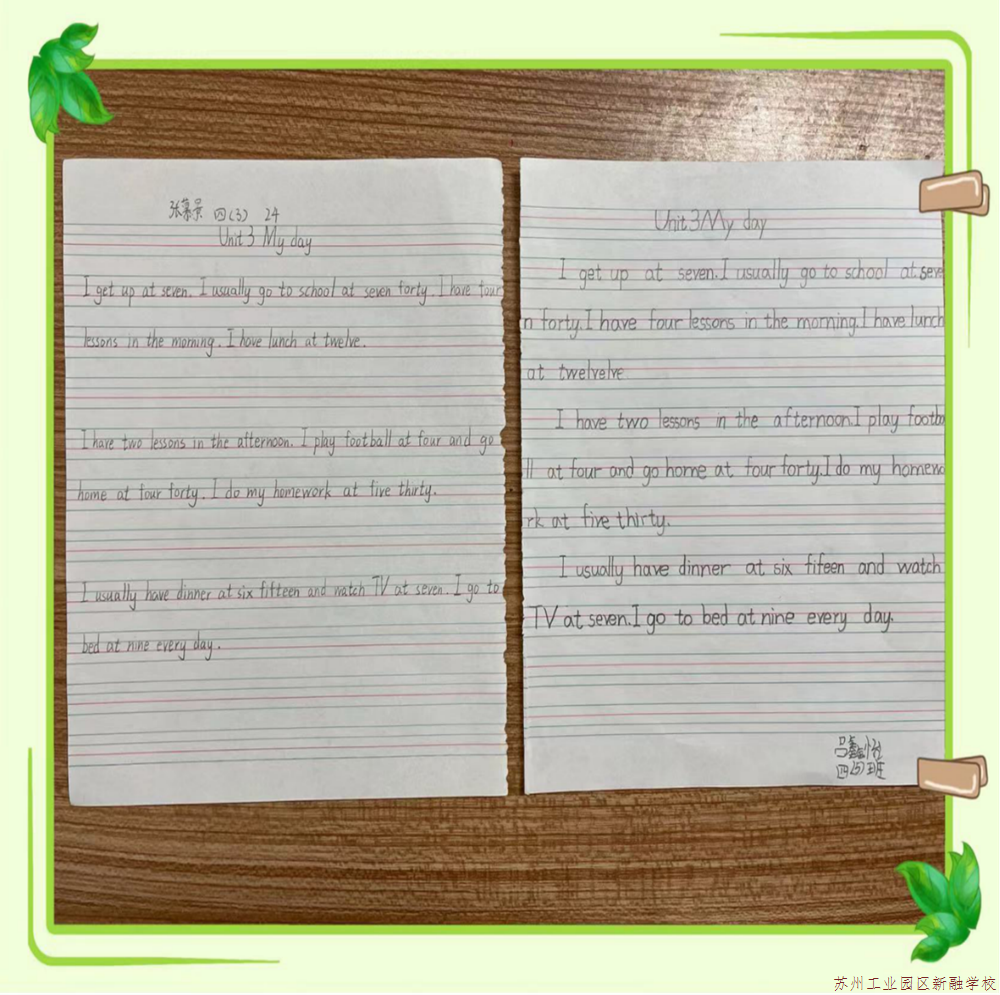 张慕景 四(3) 24
Unit 3 My day
I get up at seven. I usually go to school at seven forty. I have four
lessons in the morning. I have lunch at twelve.
I have two lessons in the afternoon. I play football at four and go
home at four forty. I do my homework at five thirty.
I usually have dinner at six fifteen and watch TV at seven. I go to
bed at nine every day.
Unit 3 My day
I get up at seven. I usually go to school at seve
n forty. I have four lessons in the morning. I have lunch
at twelvelve.
I have two lessons in the afternoon. I play footba
ll at four and go home at four forty. I do my homewo
rk at five thirty.
I usually have dinner at six fifeen and watch
TV at seven. I go to bed at nine every day.
四(5)班
苏州工业园区新融学校